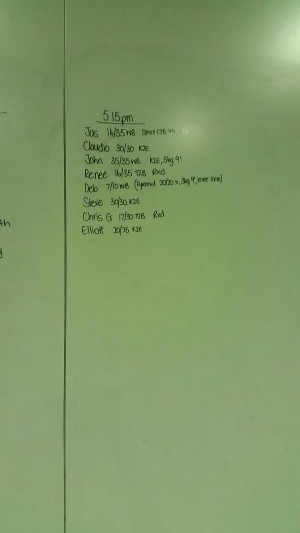 5:15pm
Jas 16/35 WB
Claudio 30/30 K2E
John 35/35 WB K2E, 5kg
Renee 16/35 T2B Rxd
Deb 7/10 WB
Steve 30/30 K2E
Chris G 17/30 T2B Rxd
Elliott 20/25 K2E